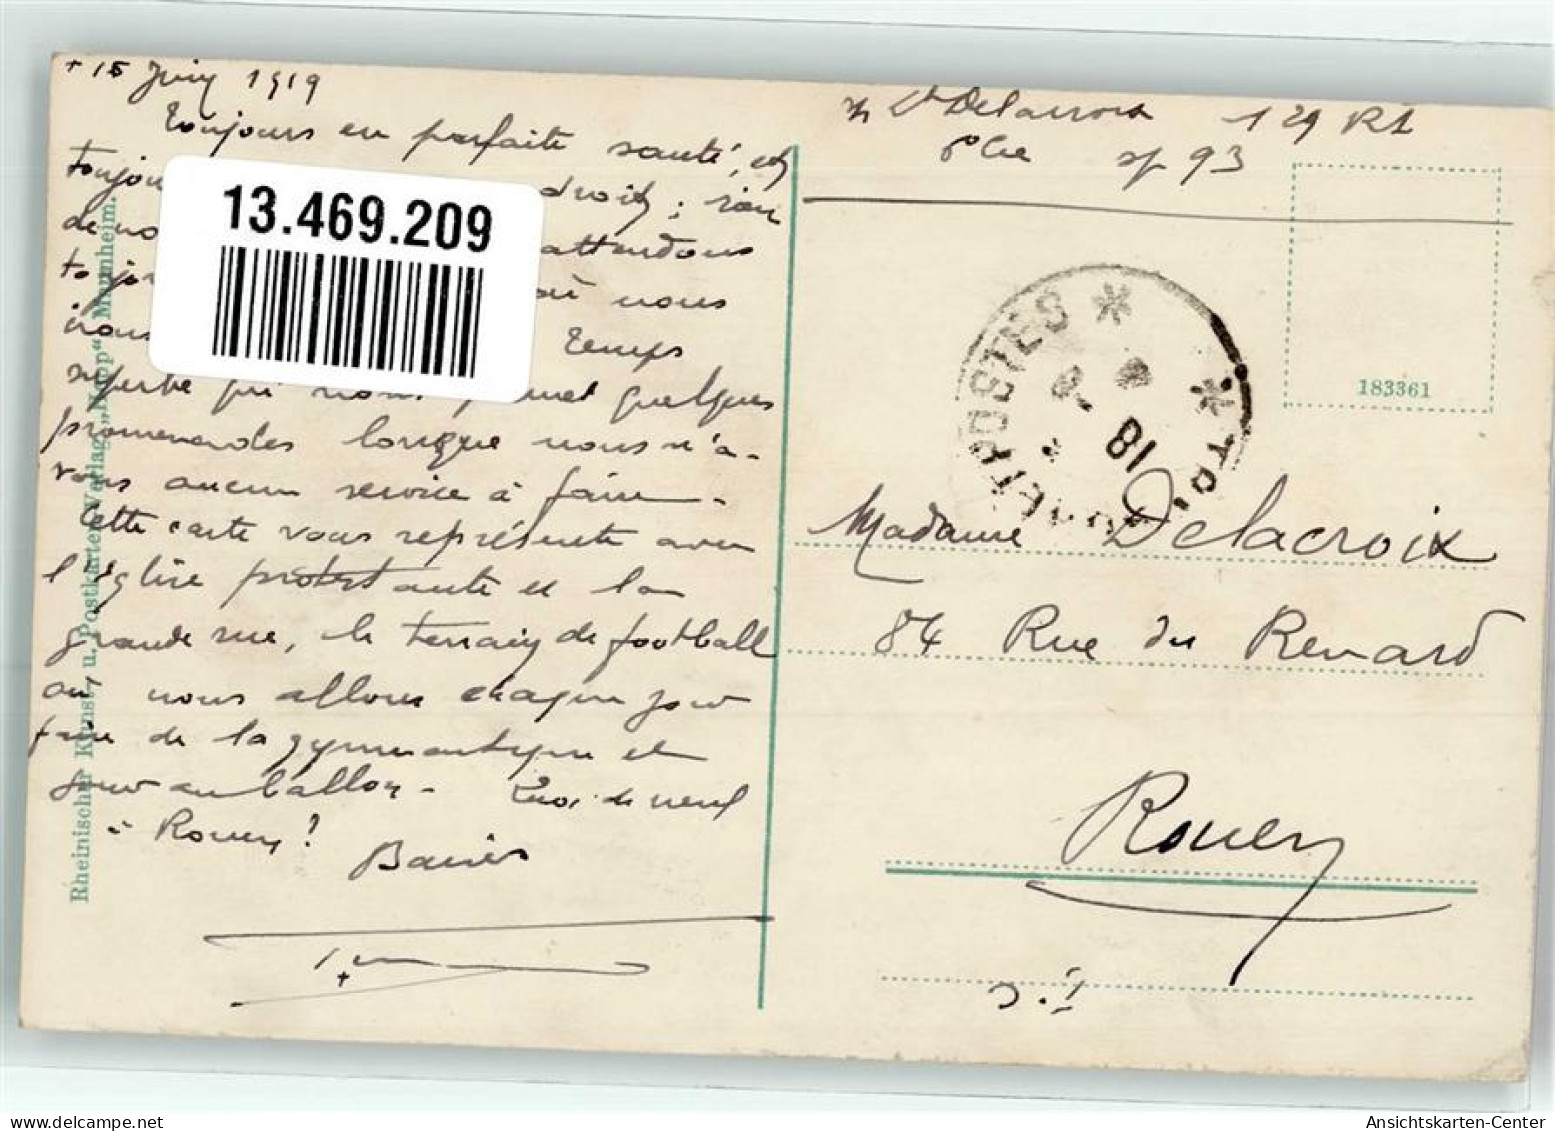 + 15 Juin 1919
Toujours en parfaite santé, et
toujou droit ; rien
de no attendons
toujou où nous
irons Temps
superbe qui nous permet quelques
promenades lorsque nous n'a-
vons aucun service à faire -
Cette carte vous représente avec
l'église protestante et la
grande rue, le terrain de football
où nous allons chaque jour
faire de la gymnastique et
jouer au ballon - Quoi de neuf
à Rouen ?
Baisers
13.469.209
Rheinischer Kunst- u. Postkarten-Verlag „Knopp“ Mannheim.
Delacroix 129 RI
Cie sp 93
183361
POSTES
18
Madame Delacroix
84 Rue du Renard
Rouen
S. I.
www.oldthing.de
Ansichtskarten-Center